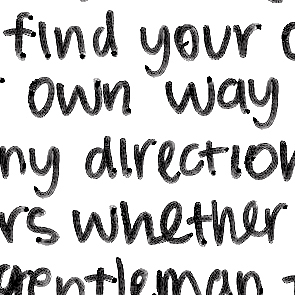 find your
own way
ny direction
rs whether
gentleman